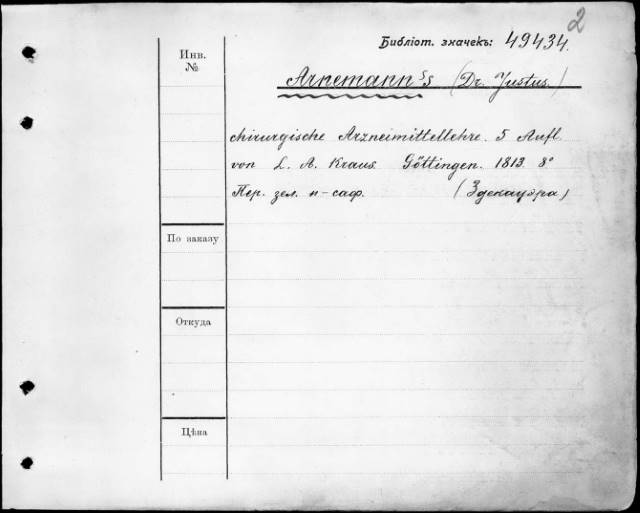 2
Библіот. значекъ: 49434.
Инв.
№
Arnemann's (Dr. Justus.)
chirurgische Arzneimittellehre. 5 Aufl.
von L. A. Kraus. Göttingen. 1813. 8°
Пер. зел. п-саф. (Здекауэра)
По заказу
Откуда
Цѣна